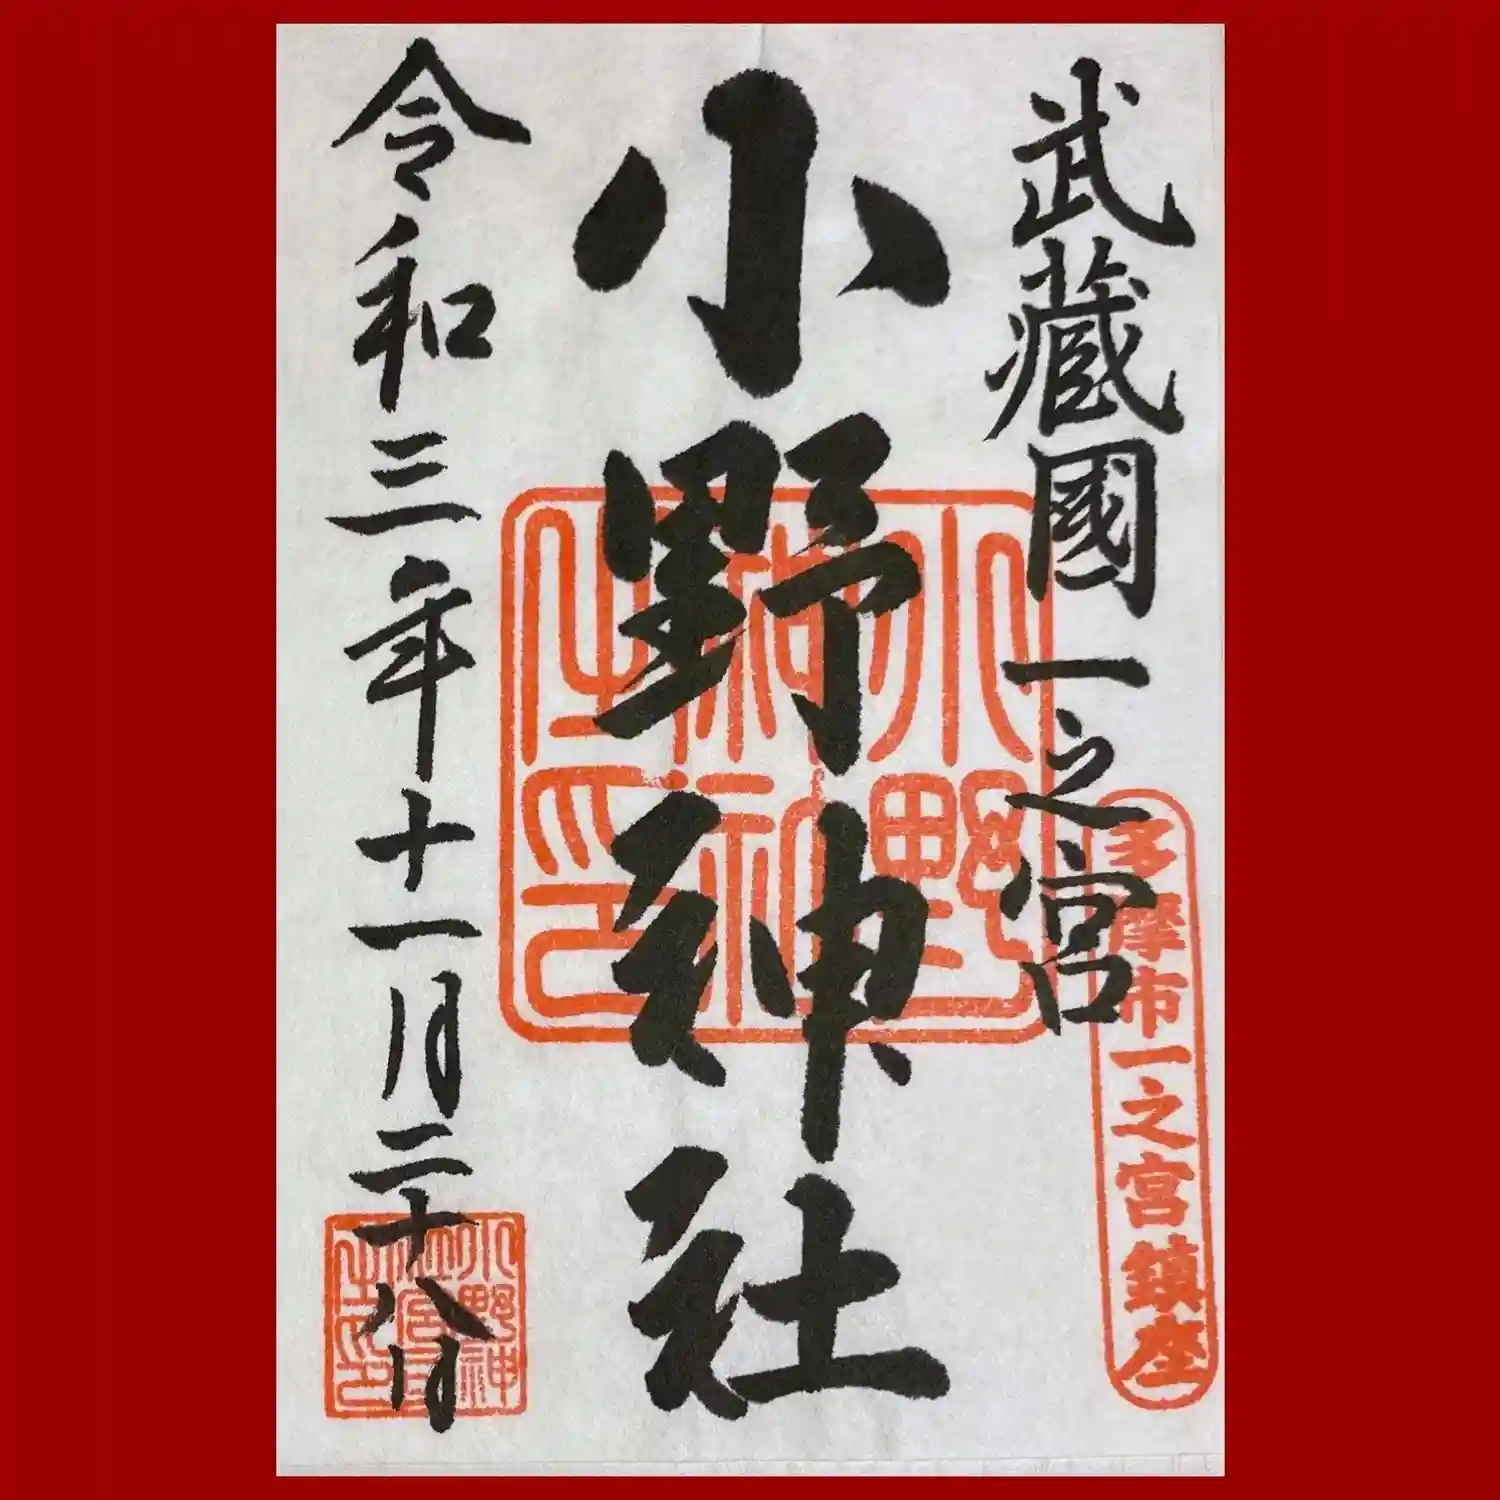 武藏國一之宮
多摩市一之宮鎮座
小野神社
小野神社之印
令和三年十一月二十八日